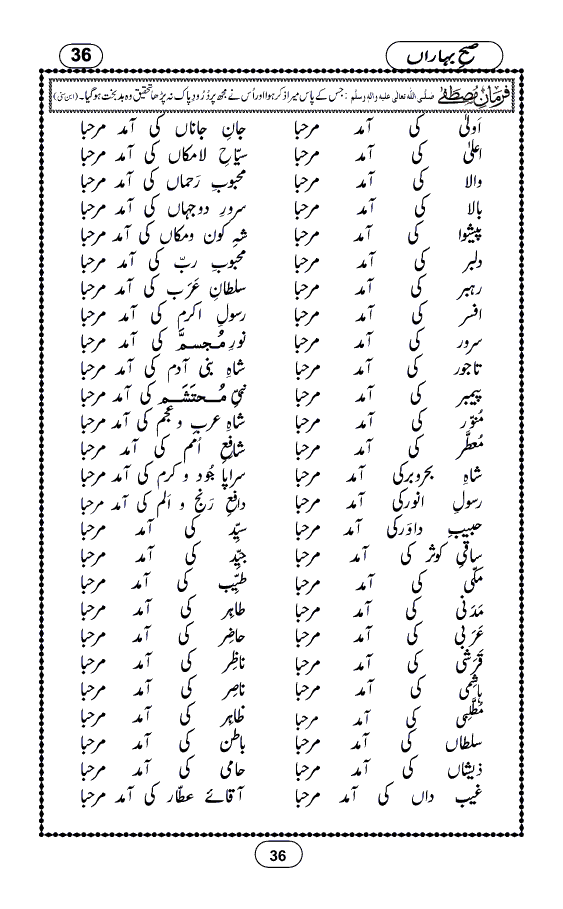 صبحِ بہاراں
36
فرمانِ مصطفٰے صلی اللہ تعالیٰ علیہ والہٖ وسلم : جس کے پاس میرا ذکر ہوا اور اُس نے مجھ پر دُرُودِ پاک نہ پڑھا تحقیق وہ بد بخت ہو گیا۔ (ابن سنی)
اَولیٰ کی آمد مرحبا
اعلیٰ کی آمد مرحبا
والا کی آمد مرحبا
بالا کی آمد مرحبا
پیشوا کی آمد مرحبا
دلبر کی آمد مرحبا
رہبر کی آمد مرحبا
افسر کی آمد مرحبا
سرور کی آمد مرحبا
تاجور کی آمد مرحبا
پیمبر کی آمد مرحبا
مُنوّر کی آمد مرحبا
مُعطَّر کی آمد مرحبا
شاہِ بحروبرکی آمد مرحبا
رسولِ انورکی آمد مرحبا
حبیبِ داوَرکی آمد مرحبا
ساقیِ کوثر کی آمد مرحبا
مکّی کی آمد مرحبا
مَدَنی کی آمد مرحبا
عَرَبی کی آمد مرحبا
قَرَشی کی آمد مرحبا
ہاشِمی کی آمد مرحبا
مُطَّلِبی کی آمد مرحبا
سلطاں کی آمد مرحبا
ذیشاں کی آمد مرحبا
غیب داں کی آمد مرحبا
جانِ جاناں کی آمد مرحبا
سیّاحِ لامکاں کی آمد مرحبا
محبوبِ رَحماں کی آمد مرحبا
سرورِ دوجہاں کی آمد مرحبا
شہِ کون ومکاں کی آمد مرحبا
محبوبِ ربّ کی آمد مرحبا
سلطانِ عَرَب کی آمد مرحبا
رسولِ اکرم کی آمد مرحبا
نورِ مُجسمَّ کی آمد مرحبا
شاہِ بنی آدم کی آمد مرحبا
نبیِّ مُحتَشَم کی آمد مرحبا
شاہِ عرب و عجم کی آمد مرحبا
شافعِ اُمم کی آمد مرحبا
سراپا جُود و کرم کی آمد مرحبا
دافعِ رَنج و اَلم کی آمد مرحبا
سیِّد کی آمد مرحبا
جیِّد کی آمد مرحبا
طیِّب کی آمد مرحبا
طاہِر کی آمد مرحبا
حاضِر کی آمد مرحبا
ناظِر کی آمد مرحبا
ناصِر کی آمد مرحبا
ظاہِر کی آمد مرحبا
باطن کی آمد مرحبا
حامی کی آمد مرحبا
آقائے عطّار کی آمد مرحبا
36